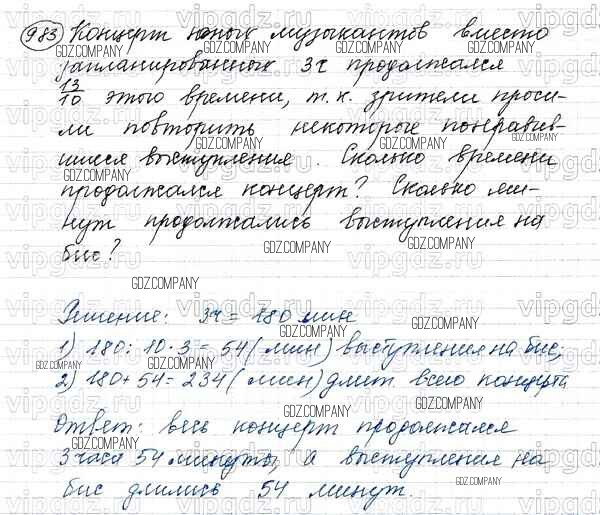 983 Концерт юных музыкантов вместо
запланированных 3ч продолжался
13/10 этого времени, т.к. зрители проси-
ли повторить некоторые понравив-
шиеся выступления. Сколько времени
продолжался концерт? Сколько ми-
нут продолжались выступления на
бис?
Решение: 3ч = 180 мин
1) 180 : 10 · 3 = 54 (мин) выступления на бис;
2) 180 + 54 = 234 (мин) длит. всего концерта
Ответ: весь концерт продолжался
3 часа 54 минуты, а выступления на
бис длились 54 минут.
vipgdz.ru
GDZ.COMPANY